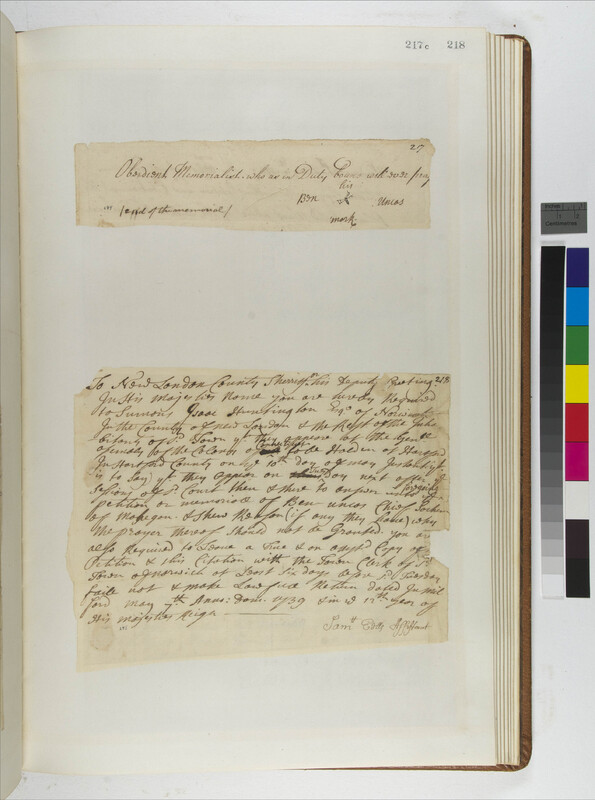 217c 218
27
Obedient Memorialist who as in Duty Bound will ever pray
his
Ben Uncas
mark
(end of the memorial)
218
To New London County Sherriff his Deputy Greeting
In His majesties Name you are hereby Required
to Summons Isaac Huntington Esqr of Norwich
In the County of New London & the Rest of the Inha
bitants of sd Town yt they appear at the Genll
assembly of the Colony of Connecticut to be Holden at Harford
In Harford County on ye 10th day of may Instant yt
is to Say yt they appear on Tues Day next after ye
Sessions of sd Court then & there to answer unto ye foregoing
petition or memoriall of Ben uncas Chief Sachem
of Mohegan & Shew Reason (if any they have) why
the prayer thereof Should not be Granted. you are
also Required to Leave a True & an attst Copy of
Petition & this Citation with the Town Clerk of sd
Town of norwich at Least Six days before sd Tuesday
faile not & make Lawfull Return dated In mil
ford may 7th Anno: Dom: 1739 & in ye 12th year of
His majesties Reign
Samll Edds Assistant